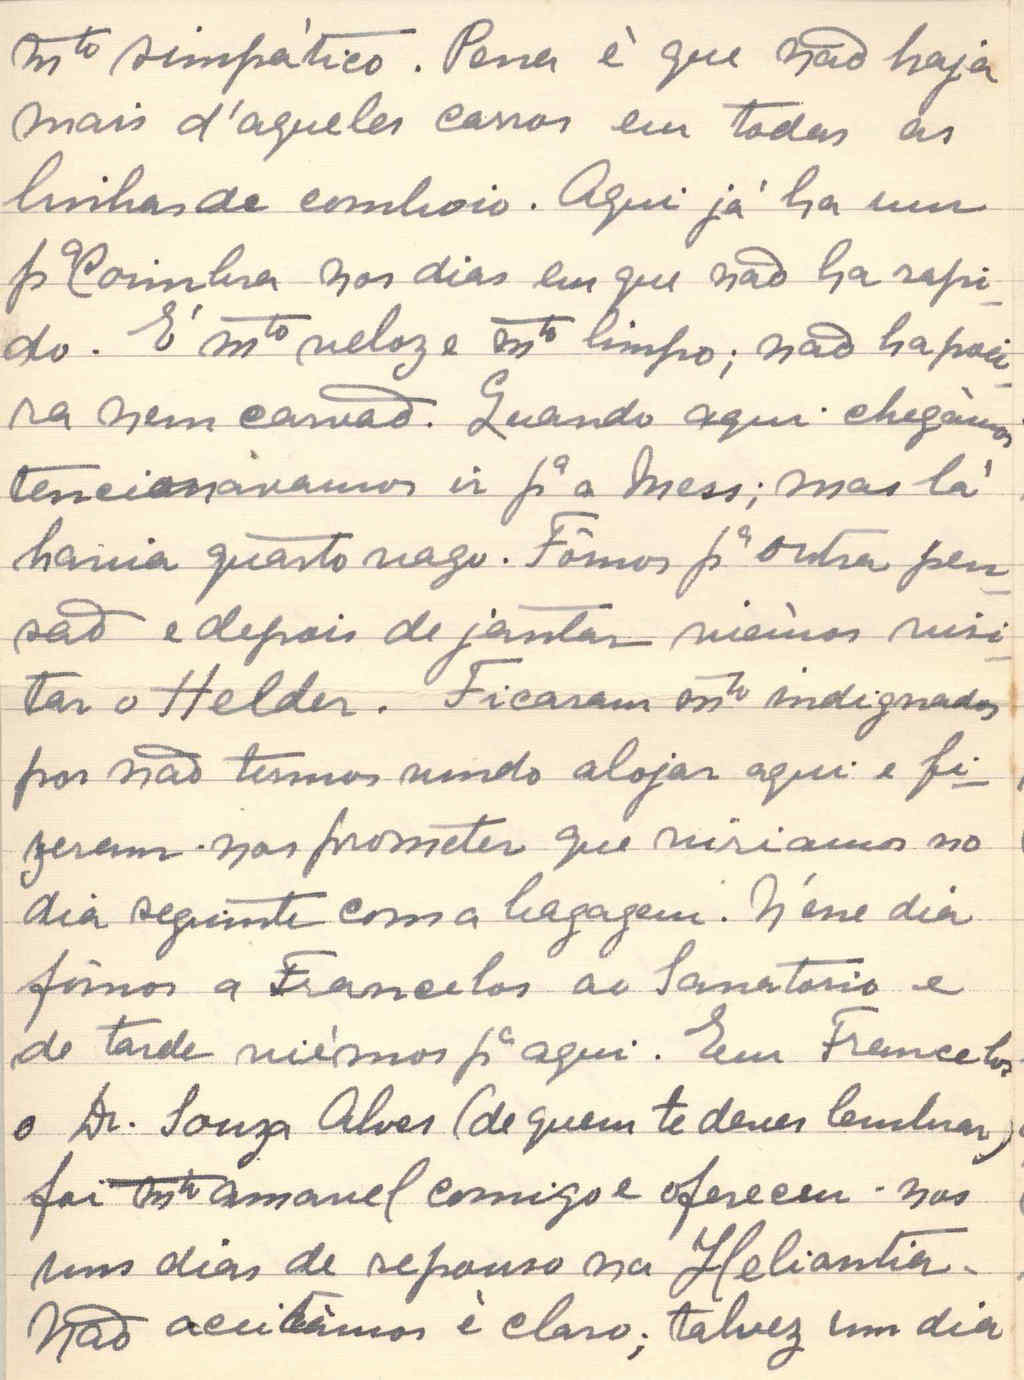 mto simpático. Pena é que não haja
mais d'aqueles carros em todas as
linhas de comboio. Aqui já ha um
pª Coimbra nos dias em que não ha rapi-
do. É mto veloz e mto limpo; não ha poei-
ra nem carvão. Quando aqui chegámos
tencionavamos ir pª a Mess; mas lá
havia quarto vago. Fômos pª outra pen-
são e depois de jantar viémos visi-
tar o Helder. Ficaram mto indignados
por não termos vindo alojar aqui e fi-
zeram-nos prometer que viriamos no
dia seguinte com a bagagem. N'ésse dia
fômos a Francelos ao Sanatorio e
de tarde viémos pª aqui. Em Francelos
o Dr. Souza Alves (de quem te deves lembrar)
foi mto amavel comigo e ofereceu-nos
uns dias de repouso na Heliantia.
Não aceitámos é claro; talvez um dia